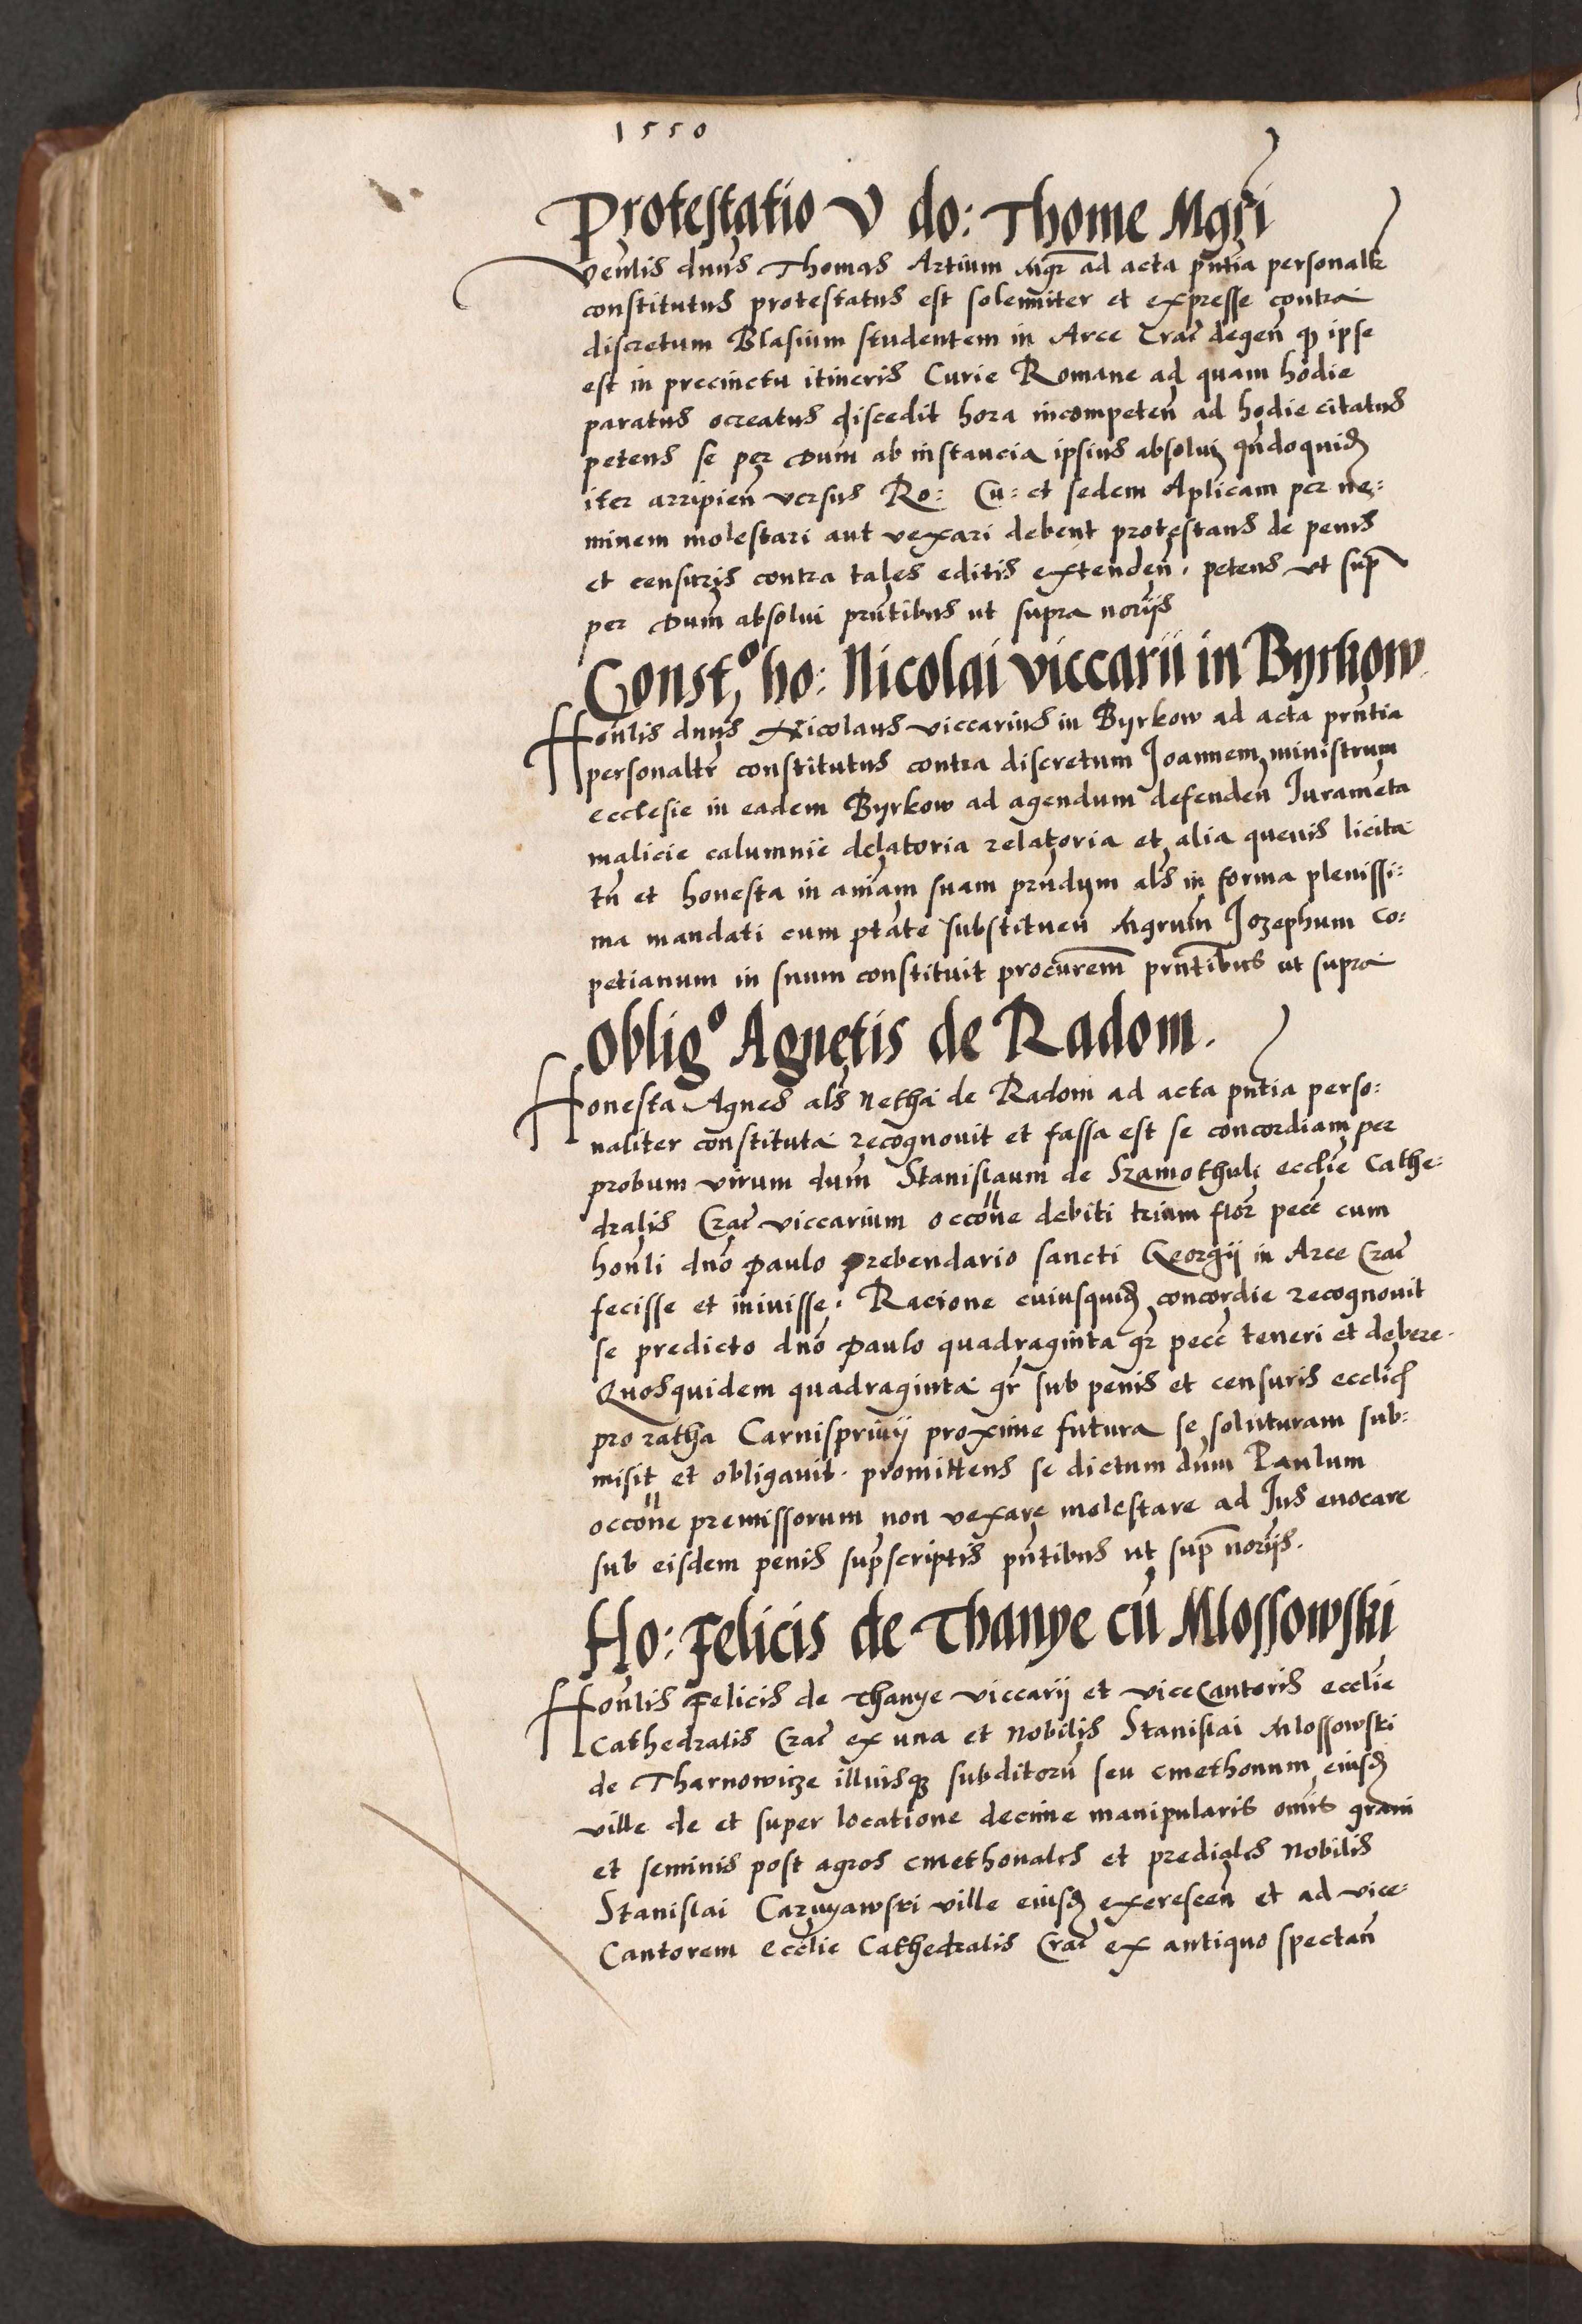 1550
Protestatio V do: Thome Mgri
Venlis dnus Thomas Artium Mgr ad acta pntia personalr
constitutus protestatus est solemniter et expresse contra
discretum Blasium studentem in Arce Crac degen qz ipse
est in precinctu itineris Curie Romane ad quam hodie
paratus ocreatus discedit hora incompeten ad hodie citatus
petens se per dum ab instancia ipsius absolui qndoquidz
iter arripien versus Ro: Cu: et sedem Aplicam per ne:
minem molestari aut vexari debent protestans de penis
et censuris contra tales editis extenden. petens ut sup
per dum absolui pntibus ut supra norijs
Const.o ho: Nicolai viccarii in Byrkow.
Honlis dnus Nicolaus viccarius in Byrkow ad acta prntia
personaltr constitutus contra discretum Joannem ministrum
ecclesie in eadem Byrkow ad agendum defenden Jurameta
malicie calumnie delatoria relatoria et alia quevis licita
tn et honesta in aniam suam prndum als in forma plenissi:
ma mandati cum ptate substituen Mgrum Jozephum Co:
petianum in suum constituit procurem prntibus ut supra
Obligo Agnetis de Radom.
Honesta Agnes als Netha de Radom ad acta pntia perso:
naliter constituta recognovit et fassa est se concordiam per
probum virum dum Stanislaum de Szamothuli ecclie Cathe:
dralis Crac viccarium occone debiti trium flor pecc cum
honli dno Paulo prebendario sancti Georgij in Arce Crac
fecisse et inivisse. Racione cuiusquidz concordie recognovit
se predicto dno Paulo quadraginta gr pecc teneri et debere.
Quosquidem quadraginta gr sub penis et censuris ecclicis
pro ratha Carnisprivij proxime futura se soluturam sub:
misit et obligavit. promittens se dictum dum Paulum
occone premissorum non vexare molestare ad Jus evocare
sub eisdem penis supscriptis pntibus ut sup norijs.
Ho: Felicis de Thanye cu Mlossowski
Honlis Felicis de Thanye viccarij et viceCantoris ecclie
Cathedralis Crac ex una et Nobilis Stanislai Mlossowski
de Tharnowicze illiusqz subditoru seu cmethonum eiusdz
ville de et super locatione decime manipularis omis grani
et seminis post agros cmethonales et prediales Nobilis
Stanislai ville eiusdz excrescen et ad vice:
Cantorem Ecclie Cathedralis Crac ex antiquo spectan